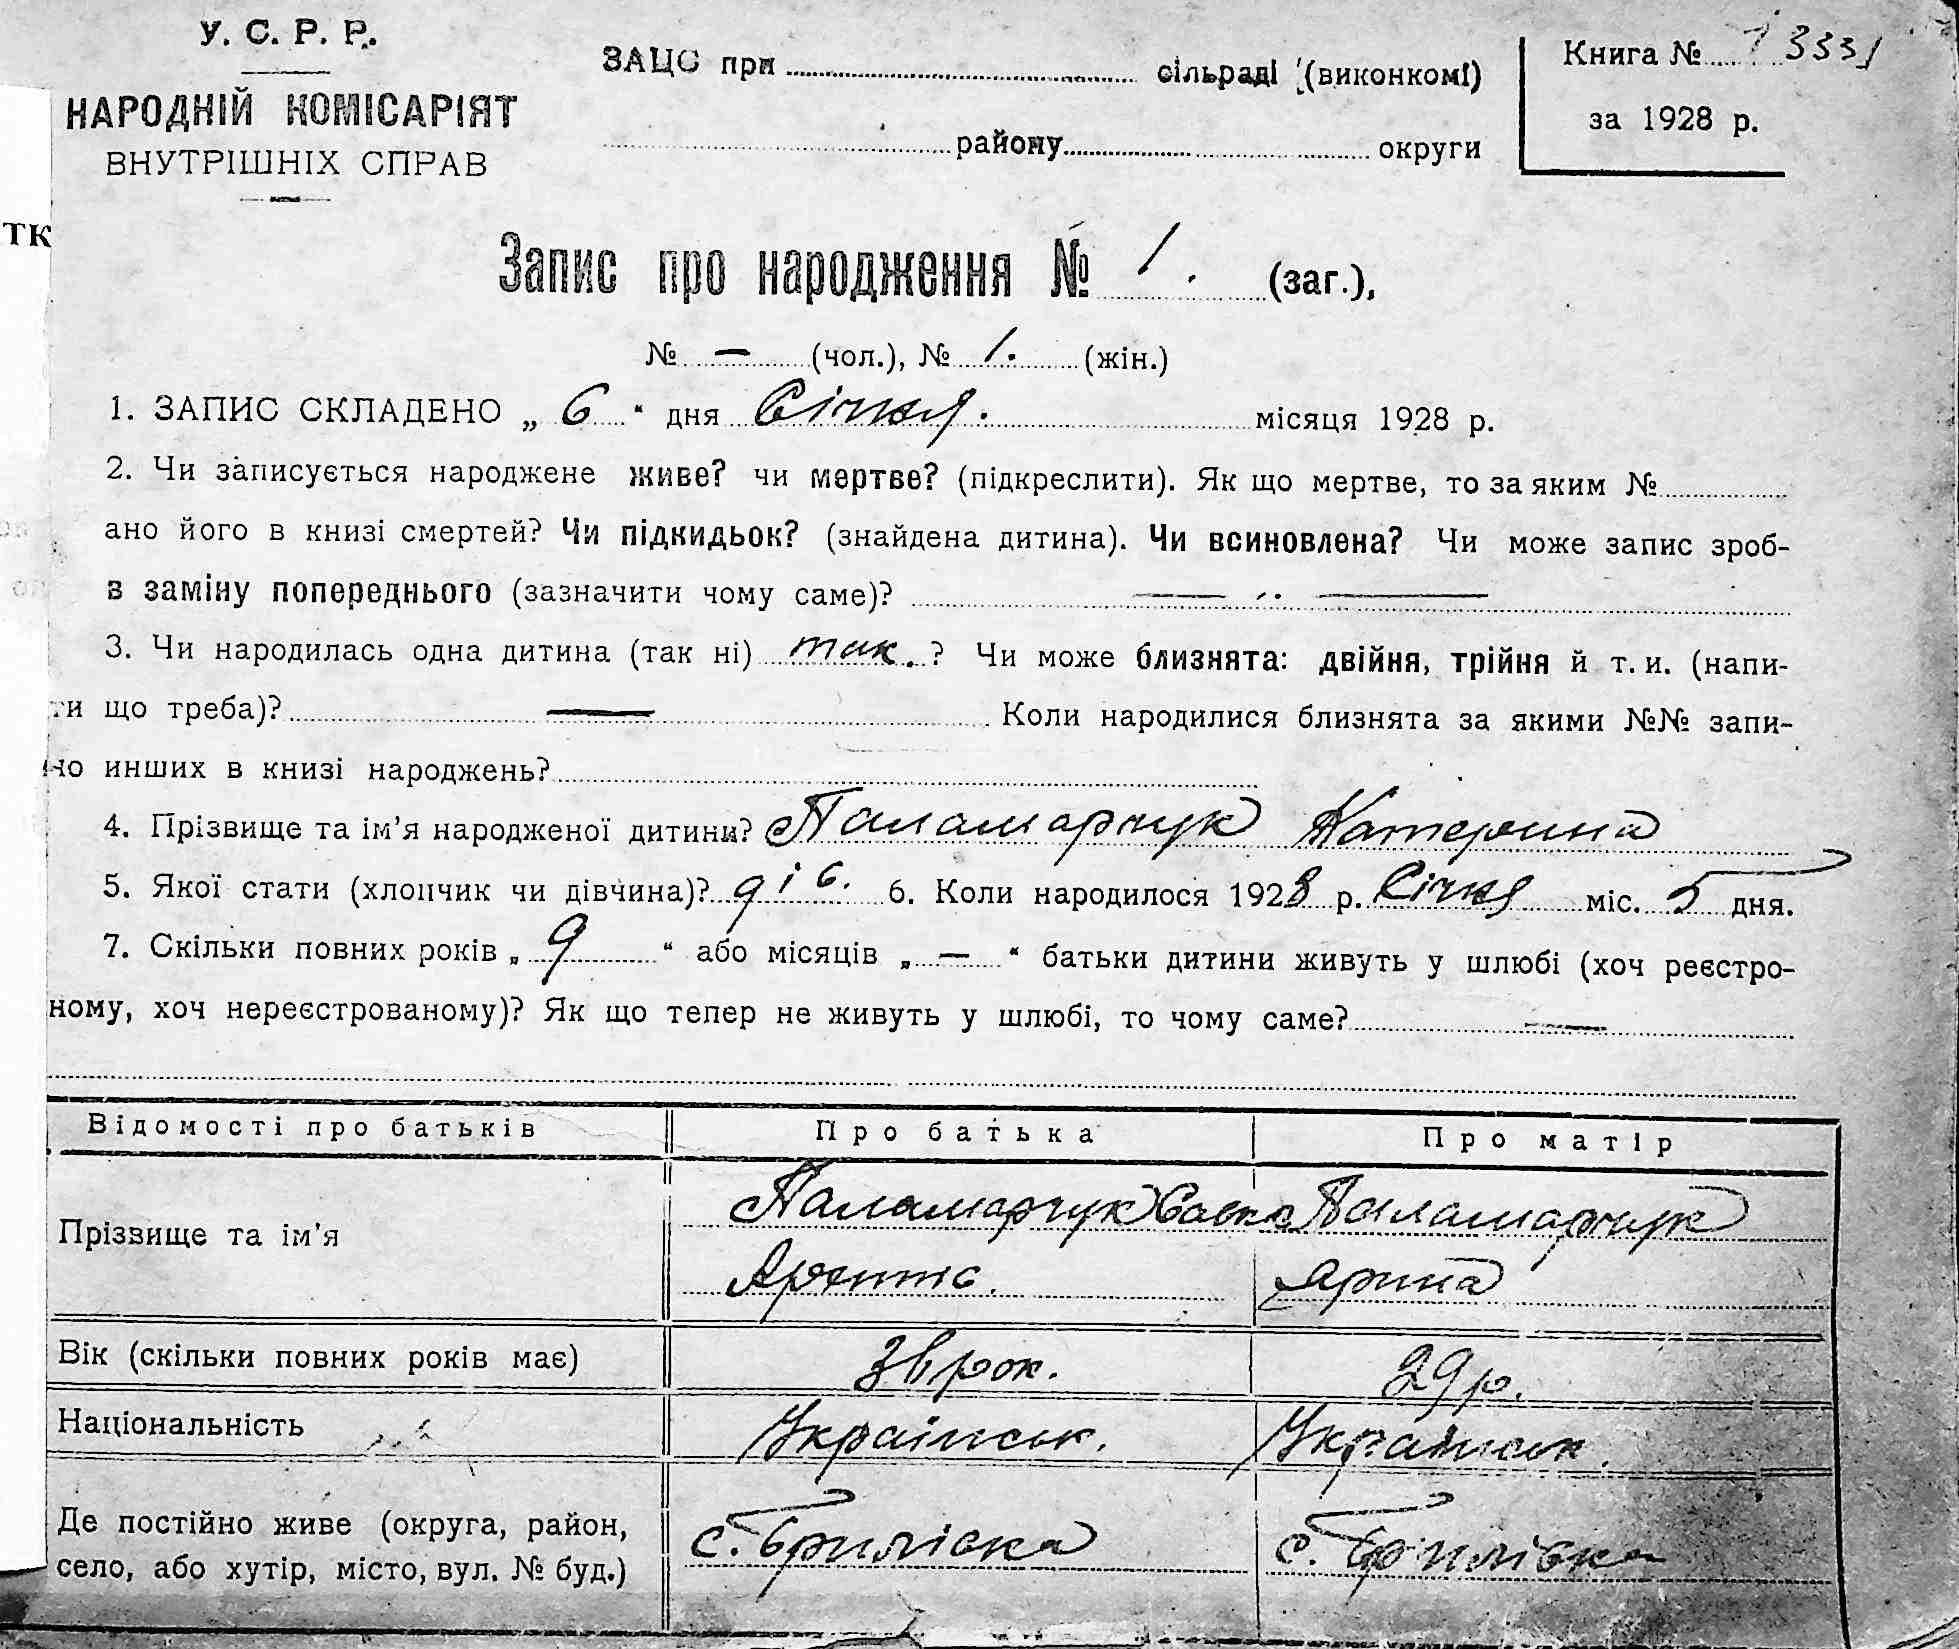 У. С. Р. Р.
НАРОДНІЙ КОМІСАРІЯТ
ВНУТРІШНІХ СПРАВ
ЗАЦС при сільраді (виконкомі)
району округи
Книга №
за 1928 р.
тк
Запис про народження № 1. (заг.),
№ — (чол.), № 1. (жін.)
1. ЗАПИС СКЛАДЕНО „ 6 “ дня Січня. місяця 1928 р.
2. Чи записується народжене живе? чи мертве? (підкреслити). Як що мертве, то за яким №
ано його в книзі смертей? Чи підкидьок? (знайдена дитина). Чи всиновлена? Чи може запис зроб-
в заміну попереднього (зазначити чому саме)?
3. Чи народилась одна дитина (так ні) так. ? Чи може близнята: двійня, трійня й т. и. (напи-
ти що треба)? — Коли народилися близнята за якими №№ запи-
но инших в книзі народжень?
4. Прізвище та ім'я народженої дитини? Паламарчук Катерина
5. Якої стати (хлопчик чи дівчина)? дів. 6. Коли народилося 1928 р. Січня міс. 5 дня.
7. Скільки повних років „ 9 “ або місяців „ — “ батьки дитини живуть у шлюбі (хоч реєстро-
ному, хоч нереєстрованому)? Як що тепер не живуть у шлюбі, то чому саме? —
Відомості про батьків Про батька Про матір
Прізвище та ім'я Паламарчук Савка Паламарчук
Ярина
Вік (скільки повних років має) рок. 29 р.
Національність Українськ. Українськ.
Де постійно живе (округа, район,
село, або хутір, місто, вул. № буд.) с. Брилівка с. Брилівка